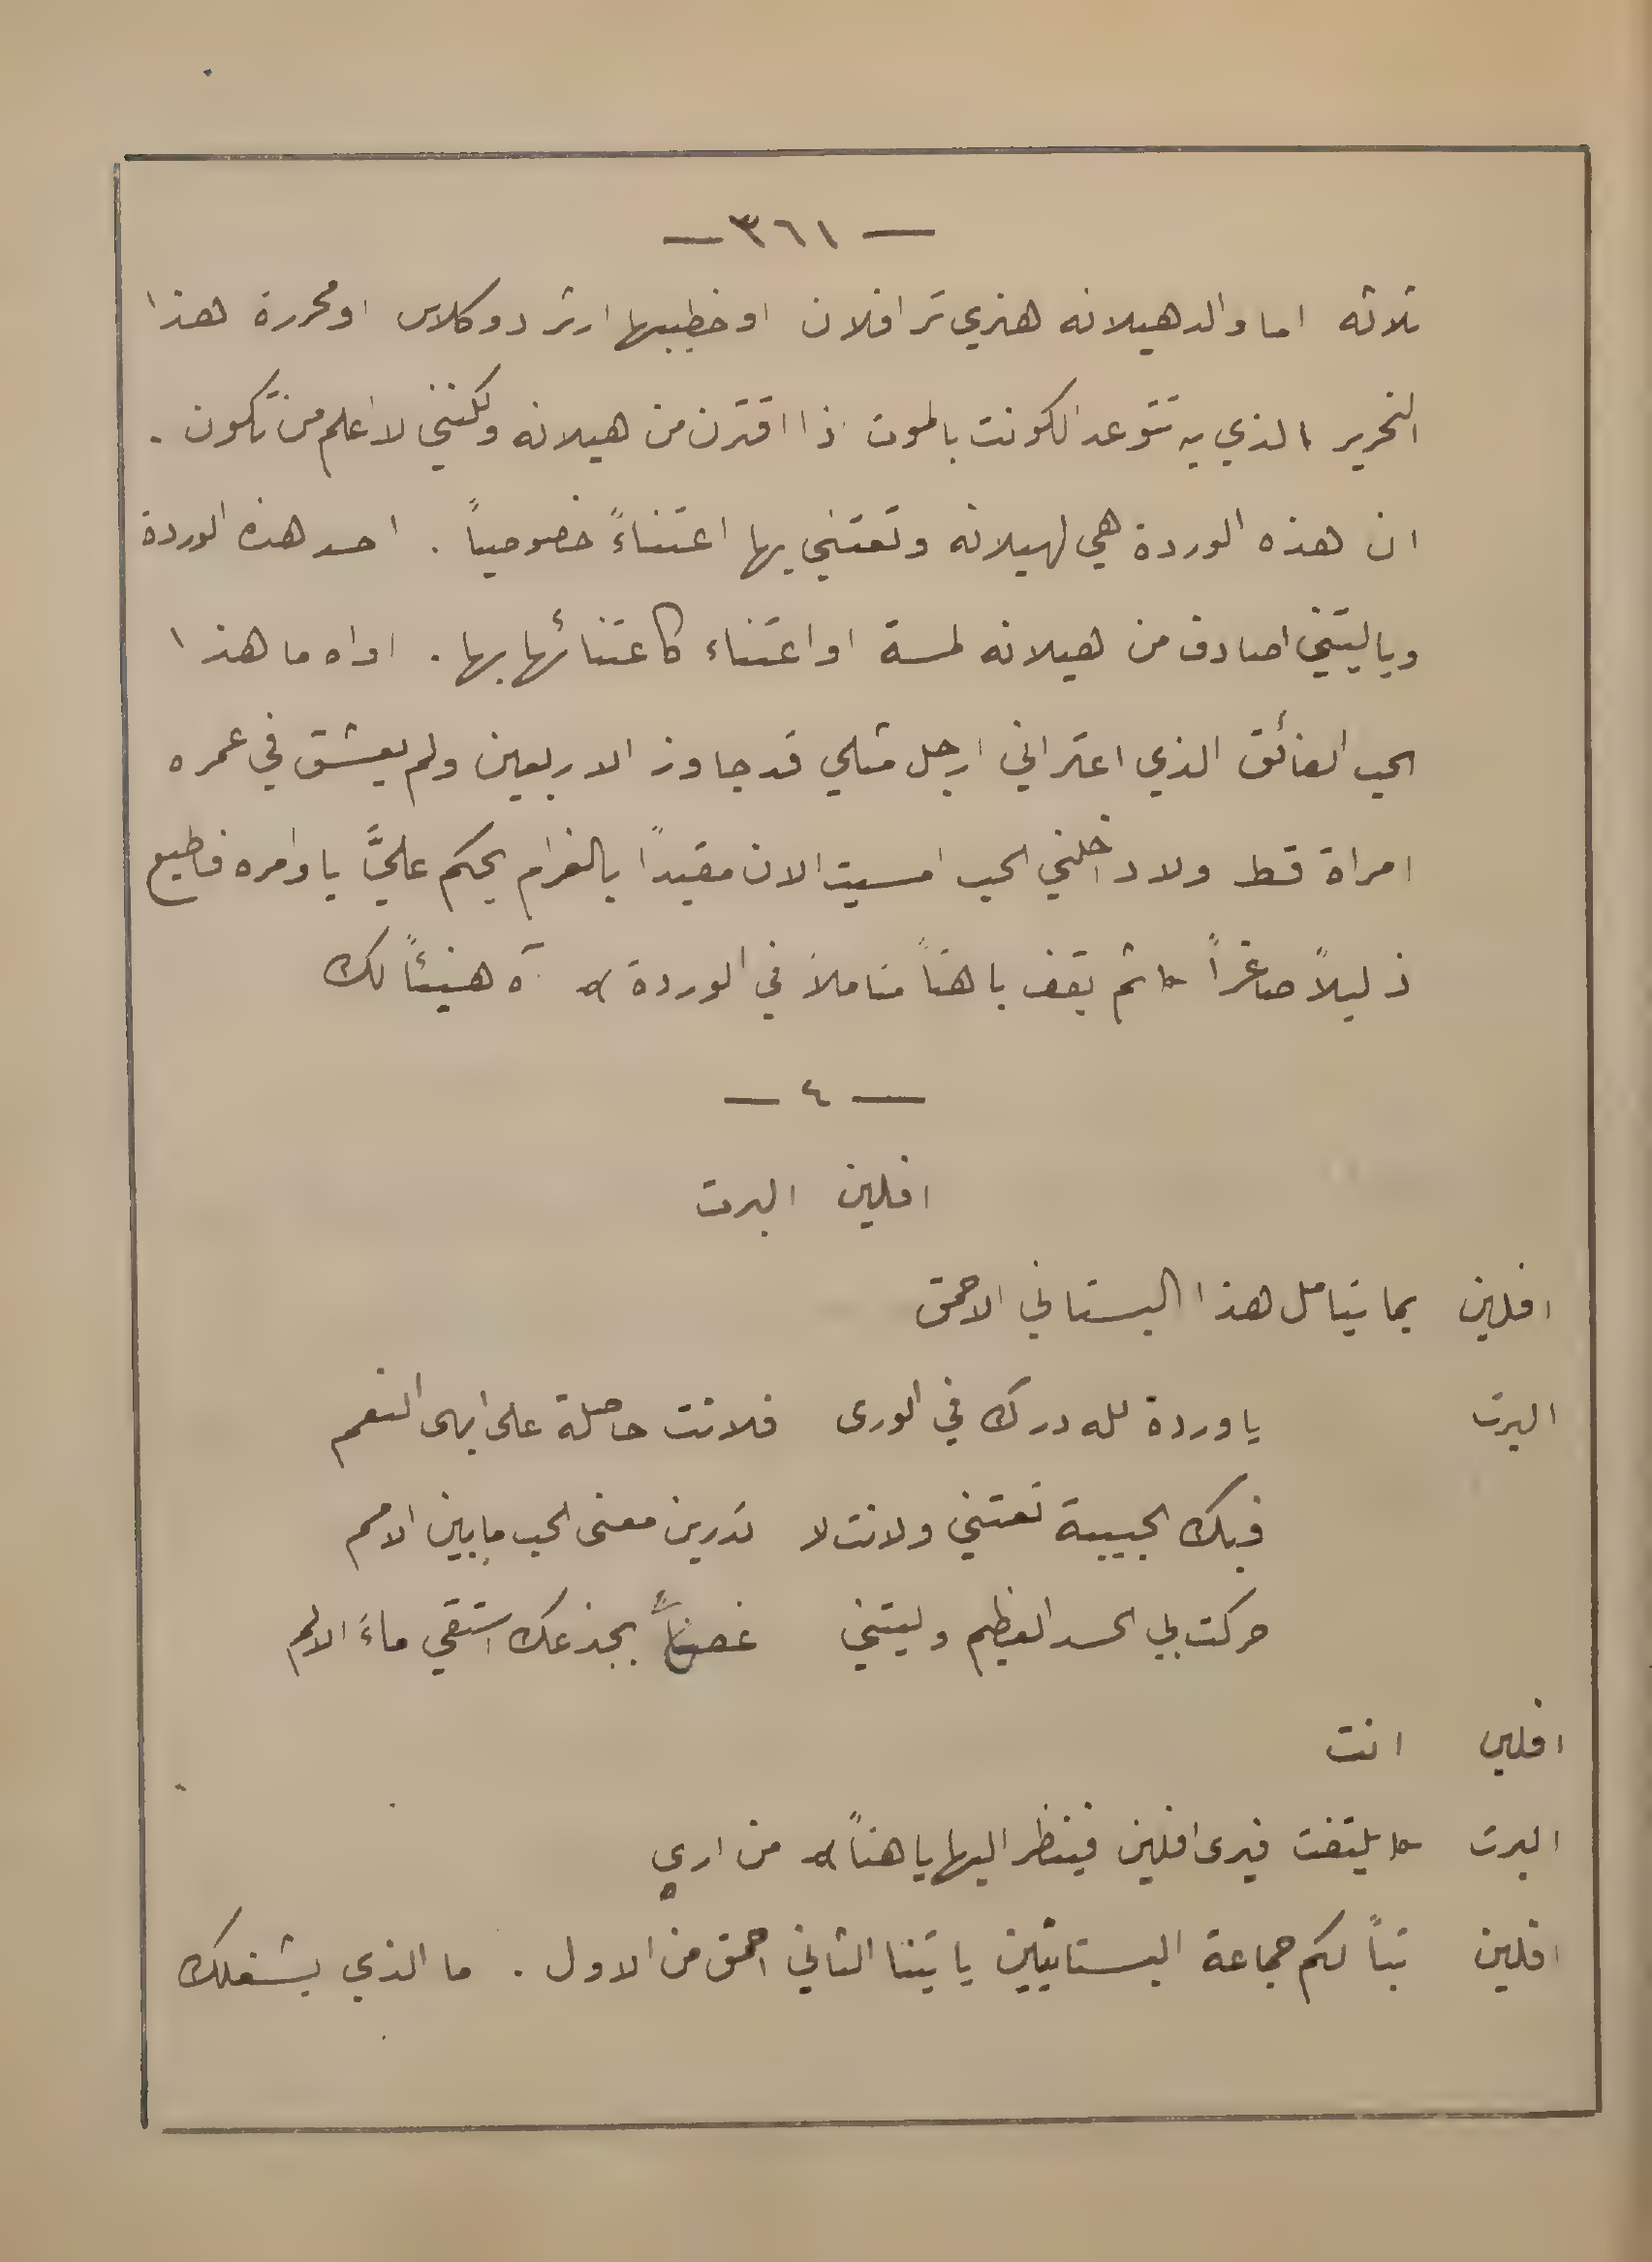 — ٣٦١ —
ثلاثه اما والد هيلانه هنري ترافلان او خطيبها ارثر دوكلاس او محررة هذا
التحرير الذي به تتوعد الكونت بالموت اذا اقترن من هيلانه ولكنني لا اعلم من تكون .
ان هذه الوردة هي لهيلانه وتعتني بها اعتناءً خصوصياً . احسد هذه الوردة
وياليتني اصادف من هيلانه لمسة او اعتناء كاعتنائها بها . اواه ما هذا
الحب الفائق الذي اعتراني ارجل مثلي قد جاوز الاربعين ولم يعشق في عمره
امراة قط ولا داخلني الحب امسيت الان مقيداً بالغرام يحكم عليَّ باوامره فاطيع
ذليلاً صاغراً (ثم يقف باهتاً متاملاً في الوردة) آه هنيئاً لك
— ٤ —
افلين البرت
افلين بما يتامل هذا البستاني الاحمق
البرت يا وردة لله درك في الورى فلانت حاصلة على ابهى النعم
فبك الحبيبة تعتني ولانت لا تدرين معنى الحب ما بين الامم
حركت بي الحسد العظيم وليتني غصناً بجذعك استقي ماءَ الالم
افلين انت
البرت (يلتفت فيرى افلين فينظر اليها باهتاً) من ارى
افلين تباً لكم جماعة البستانيين ياتينا الثاني احمق من الاول . ما الذي يشغلك